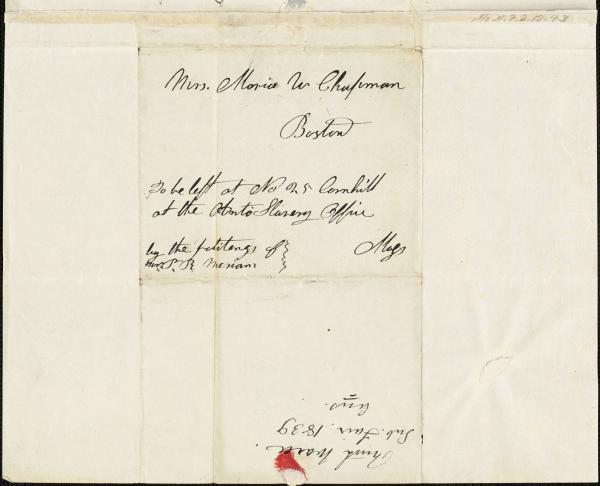 Ms. A.9.2.12.43
Mrs. Maria W Chapman
Boston
To be left at No 25 Cornhill
at the Anti Slavery Office
by the politeness of
Mrs. Meriam
Mass
1839